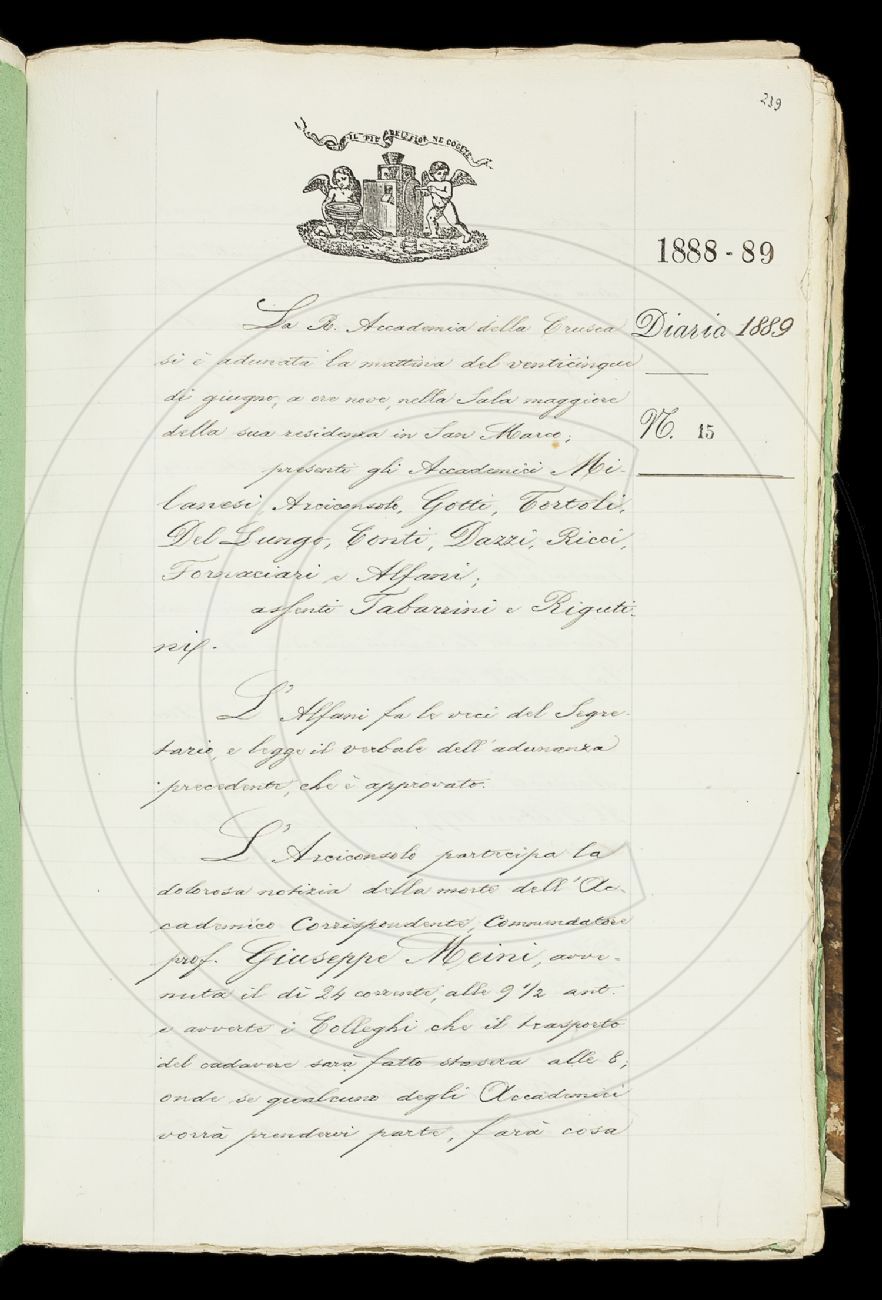 239
IL PIÙ BEL FIOR NE COGLIE
1888-89
Diario 1889
N. 15
La R. Accademia della Crusca
si è adunata la mattina del venticinque
di giugno, a ore nove, nella Sala maggiore
della sua residenza in San Marco;
presenti gli Accademici Mi-
lanesi Arciconsolo, Gotti, Tortoli,
Del Lungo, Conti, Dazzi, Ricci,
Fornaciari e Alfani;
assenti Tabarrini e Riguti-
ni.
L'Alfani fa le veci del Segre-
tario, e legge il verbale dell'adunanza
precedente, che è approvato.
L'Arciconsolo partecipa la
dolorosa notizia della morte dell'Ac-
cademico Corrispondente, Commendatore
prof. Giuseppe Meini, avve-
nuta il dì 24 corrente, alle 9 1/2 ant.
e avverte i Colleghi che il trasporto
del cadavere sarà fatto stasera alle 8;
onde se qualcuno degli Accademici
vorrà prendervi parte, farà cosa